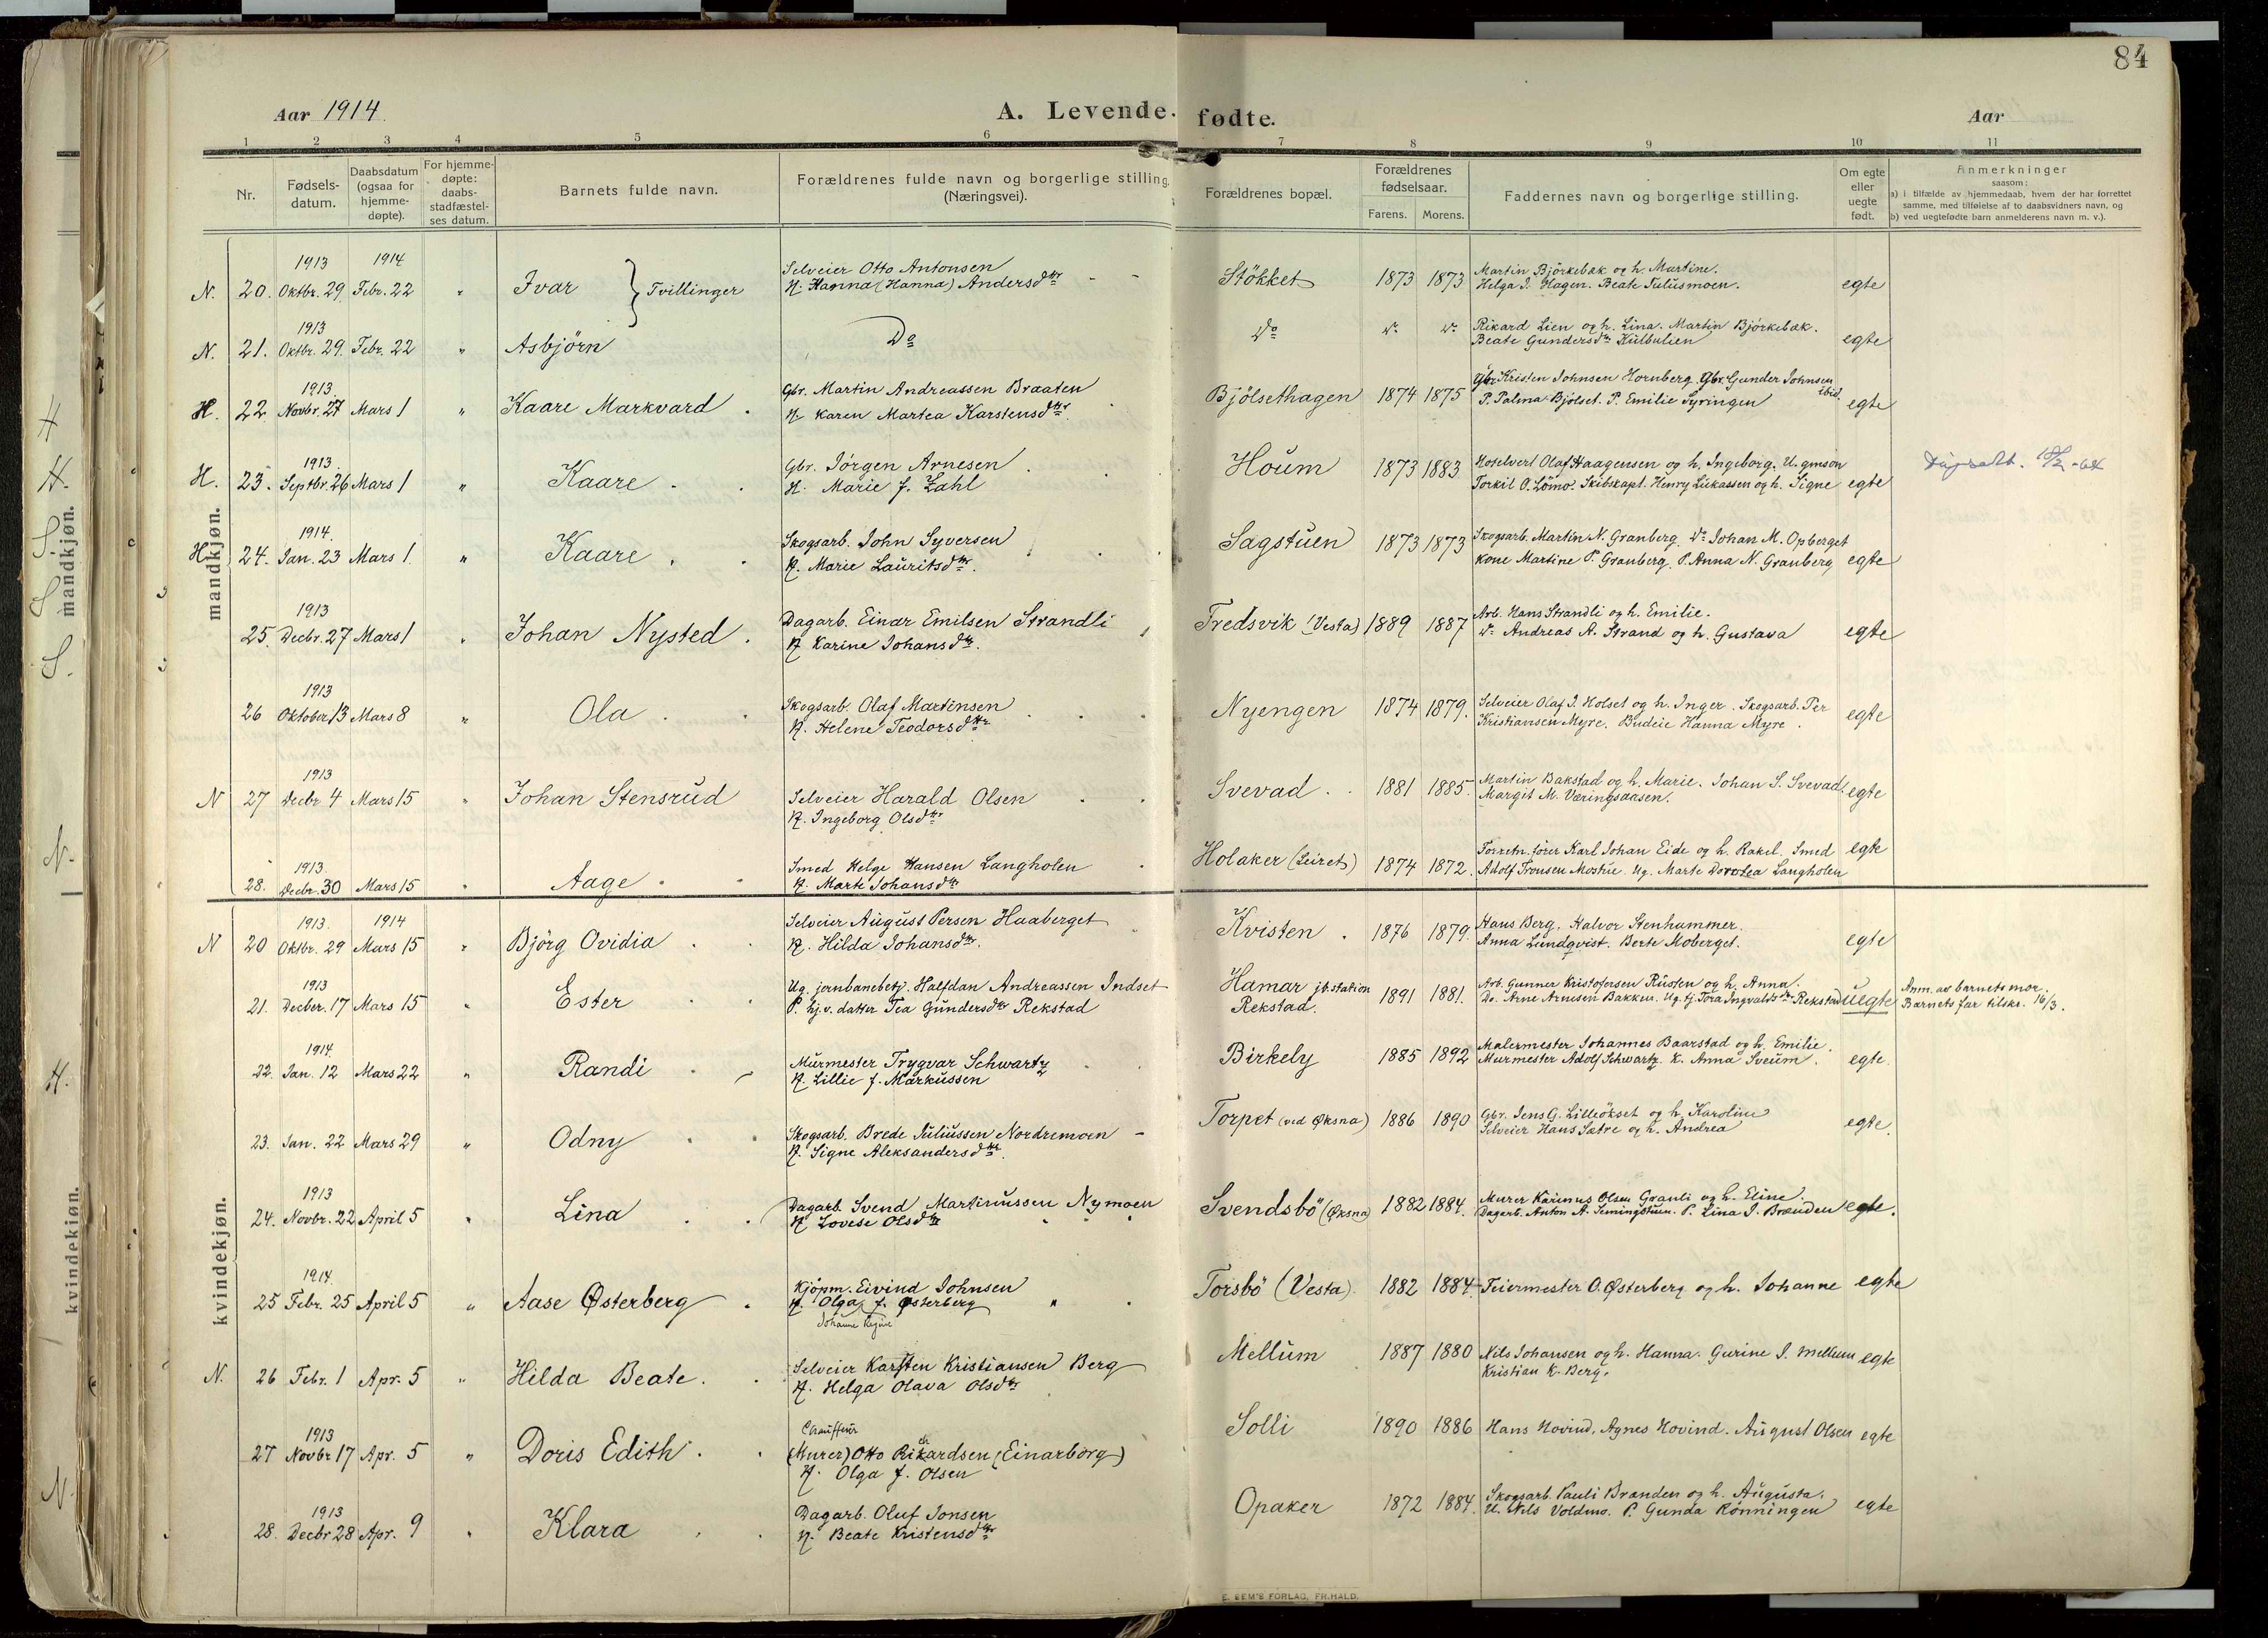 84
Aar 1914.
A. Levende. fødte.
Aar
1 2 3 4 5 6 7 8 9 10 11
Nr.
Fødsels-
datum.
Daabsdatum
(ogsaa for
hjemme-
døpte).
For hjemme-
døpte:
daabs-
stadfæstel-
ses datum.
Barnets fulde navn.
Forældrenes fulde navn og borgerlige stilling.
(Næringsvei).
Forældrenes bopæl.
Forældrenes
fødselsaar.
Farens. Morens.
Faddernes navn og borgerlige stilling.
Om egte
eller
uegte
født.
Anmerkninger
saasom:
a) i tilfælde av hjemmedaab, hvem der har forrettet
samme, med tilføielse af to daabsvidners navn, og
b) ved uegtefødte barn anmelderens navn m. v.).
mandkjøn.
1913 1914
N. 20. Oktbr. 29 Febr. 22 " Ivar } Tvillinger
Selveier Otto Antonsen
H. Hanna (Hanna) Andersdtr
Stökket 1873 1873
Martin Björkebæk og h. Martine.
Helga I. Hagen. Beate Juliusmoen.
egte
1913
N. 21. Oktbr. 29. Febr. 22 " Asbjörn
Do
Do Do Do
Rikard Lien og h. Lina. Martin Björkebæk.
Beate Gundersdtr Kulbulien
egte
1913.
H. 22 Novbr. 27 Mars 1 " Kaare Markvard.
Gbr. Martin Andreassen Braaten
H. Karen Martea Karstensdtr
Bjölsethagen 1874 1875
Gbr. Kristen Johnsen Hornberg. Gbr. Gunder Johnsen
ibid.
P. Palma Bjölset. P. Emilie Syringen
egte
1913.
H. 23. Septbr. 26 Mars 1 " Kaare.
Gbr. Jörgen Arnesen
H. Marie f. Zahl
Houm 1873 1883
Hotelvert Olaf Haagensen og h. Ingeborg. U. gmsön
Torkil O. Lömo. Skibskapt. Henry Lukassen og h. Signe
egte
1914.
H. 24. Jan. 23 Mars 1. " Kaare.
Skogsarb. John Syversen
H. Marie Lauritsdtr.
Sagstuen 1873 1873
Skogsarb. Martin N. Granberg. Do Johan M. Opberget
Kone Martine P. Granberg. P. Anna N. Granberg
egte
1913
25. Decbr. 27 Mars 1 " Johan Nysted.
Dagarb. Einar Emilsen Strandli
H. Karine Johansdtr.
Fredsvik (Vesta) 1889 1887
Arb. Hans Strandli og h. Emilie.
Do Andreas A. Strand og h. Gustava
egte
1913
26 Oktober 13 Mars 8 " Ola.
Skogsarb. Olaf Martinsen
H. Helene Teodorsdtr
Nyengen 1874 1879.
Selveier Olaf I. Holset og h. Inger. Skogsarb. Per
Kristiansen Myre. Budeie Hanna Myre.
egte
1913
N 27 Decbr 4 Mars 15 " Johan Stensrud
Selveier Harald Olsen
H. Ingeborg Olsdtr
Svevad. 1881 1885.
Martin Bakstad og h. Marie. Johan S. Svevad.
Margit M. Væringsaasen.
egte
1913.
28. Decbr. 30 Mars 15 " Aage.
Smed Helge Hansen Langholen
H. Marte Johansdtr
Holaker (Leiret) 1874 1872.
Forretn.förer Karl Johan Eide og h. Rakel. Smed
Adolf Tronsen Moshue. Ug. Marte Dorotea Langholen
egte
kvindekjøn.
1913. 1914
N 20 Oktbr. 29 Mars 15 " Björg Ovidia
Selveier August Persen Haaberget
H. Hilda Johansdtr.
Kvisten. 1876 1879.
Hans Berg, Halvor Stenhammer.
Anna Lundqvist. Berte Moberget.
egte
1913
21. Decber. 17 Mars 15 " Ester
Ug. jernbanebetj. Halfdan Andreassen Indset
P. hj.v. datter Tea Gundersdtr Rekstad
Hamar jb.station
Rekstad.
1891 1881.
Arb. Gunner Kristofersen Rusten og h. Anna.
Do. Arne Arnesen Bakken. Ug. tj. Tora Ingvaldsdtr Rekstad
uegte
Anm. av barnets mor.
Barnets far tilskr. 16/3.
1914.
22. Jan. 12 Mars 22 " Randi
Murmester Trygvar Schwartz
H. Lillie f. Markussen
Birkely 1885 1892
Malermester Johannes Baarstad og h. Emilie.
Murmester Adolf Schwartz. K. Anna Sveum.
egte
23. Jan. 22 Mars 29 " Odny
Skogsarb. Brede Juliussen Nordremoen
H. Signe Aleksandersdtr.
Torpet (ved Øksna) 1886 1890
Gbr. Jens G. Lilleökset og h. Karoline
Selveier Hans Sætre og h. Andrea
egte.
1913
24. Novbr. 22 April 5 " Lina
Dagarb. Svend Martinussen Nymoen
H. Lovese Olsdtr
Svendsbö (Øksna) 1882 1884.
Murer Karinus Olsen Granli og h. Eline.
Dagarb. Anton A. Semingstuen. P. Lina J. Brænden
egte.
1914.
25 Febr. 25 April 5 " Aase Østerberg.
Kjöpm. Eivind Johnsen
H. Olga f. Østerberg
Johanne Regine
Torsbö (Vesta). 1882 1884
Feiermester O. Østerberg og h. Johanne
egte
N. 26 Febr. 1 Apr. 5 " Hilda Beate.
Selveier Karsten Kristiansen Berg
H. Helga Olava Olsdtr
Mellum 1887 1880
Nils Johansen og h. Hanna. Gurine I. Mellum
Kristian K. Berg.
egte
1913
27 Novbr 17 Apr. 5 " Doris Edith.
Chauffeur
(Murer) Otto Rikardsen (Einarborg)
H. Olga f. Olsen
Solli 1890 1886
Hans Hovind, Agnes Hovind. August Olsen
egte
1913
28. Decbr 28 Apr. 9 " Klara
Dagarb. Oluf Jonsen
H. Beate Kristensdtr
Opaker 1872 1884.
Skogsarb. Pauli Brænden og h. Augusta.
U. Nils Voldmo. P. Gunda Rönningen
egte
E. SEM'S FORLAG, FR.HALD.
H
H.
S.
mandkjøn.
S
S.
N.
H.
kvindekjøn.
N.